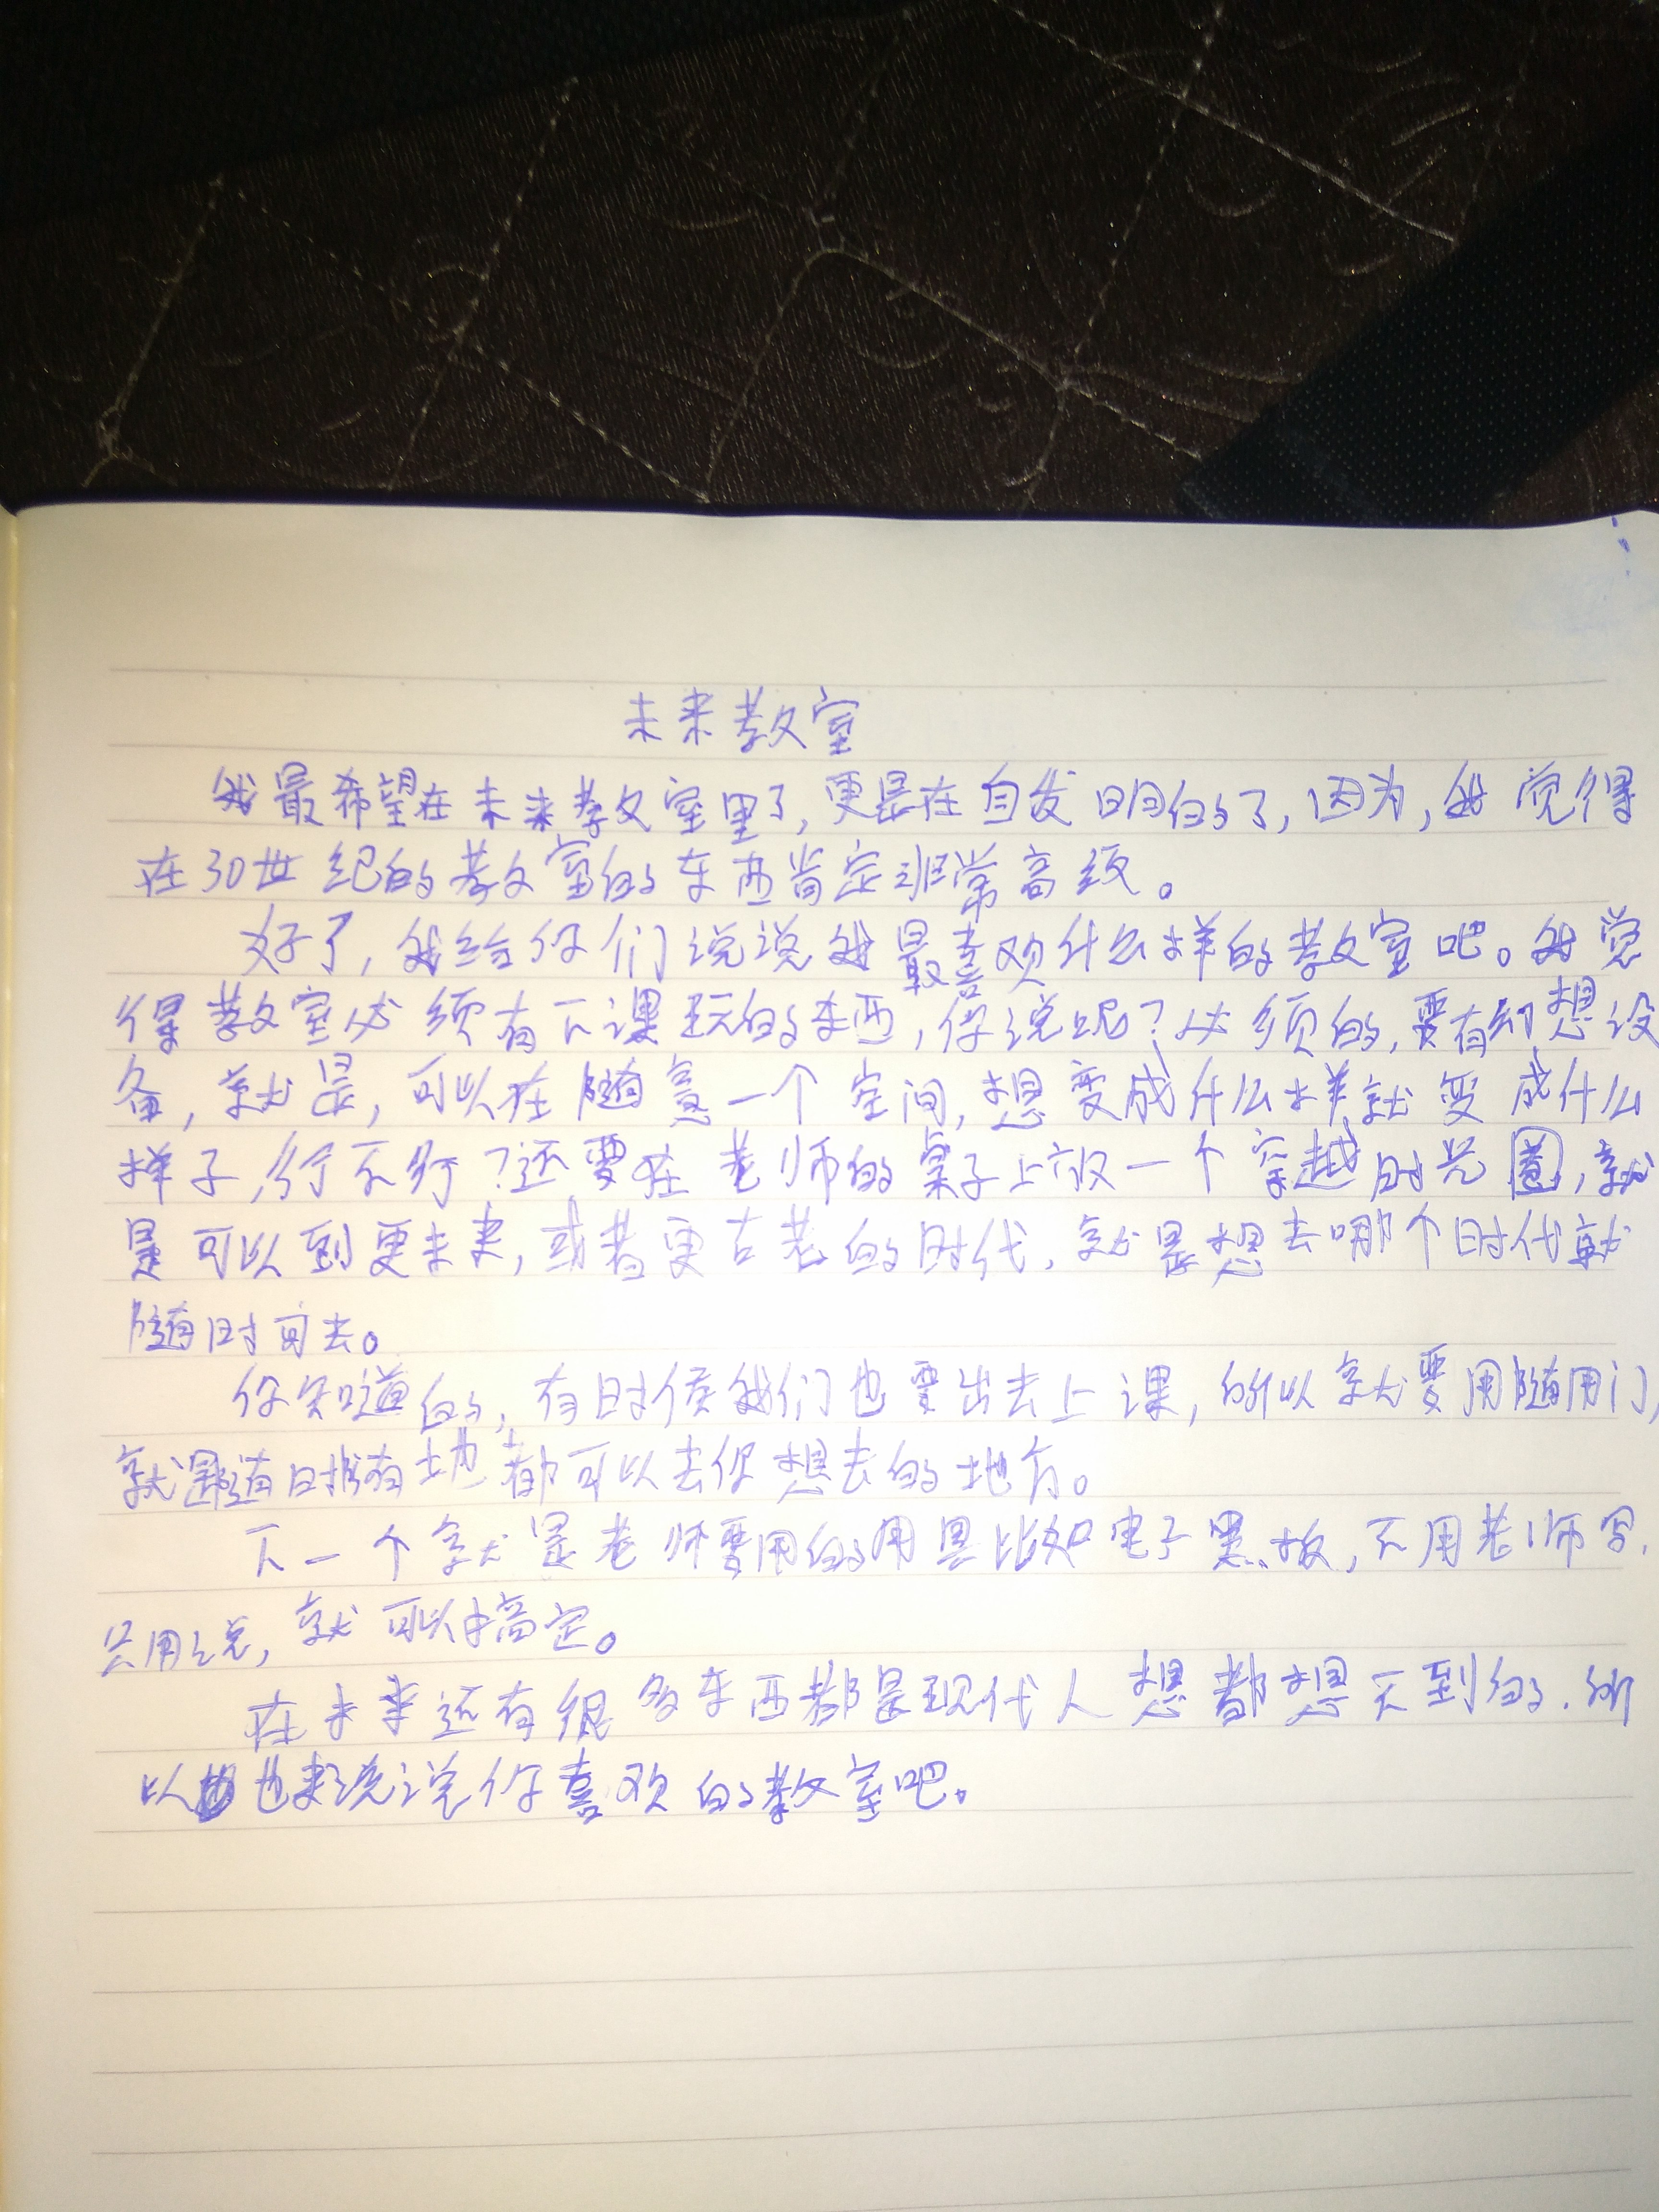 未来教室
我最希望在未来教室里了,更是在自发明的了,因为,我觉得
在30世纪的教室的东西肯定非常高级。
好了,我给你们说说我最喜欢什么样的教室吧。我觉
得教室必须有下课玩的东西,你说呢?必须的,要有幻想设
备,就是,可以在随意一个空间,想变成什么样就变成什么
样子,行不行?还要在老师的桌子上放一个穿越时光圈,就
是可以到更未来,或者更古老的时代,就是想去哪个时代就
随时可去。
你知道的,有时侯我们也要出去上课,所以就要用随用门,
就是随时随地都可以去你想去的地方。
下一个就是老师要用的用具比如电子黑板,不用老师写,
只用说,就可以搞定。
在未来还有很多东西都是现代人想都想不到的.所
以也来说说你喜欢的教室吧。